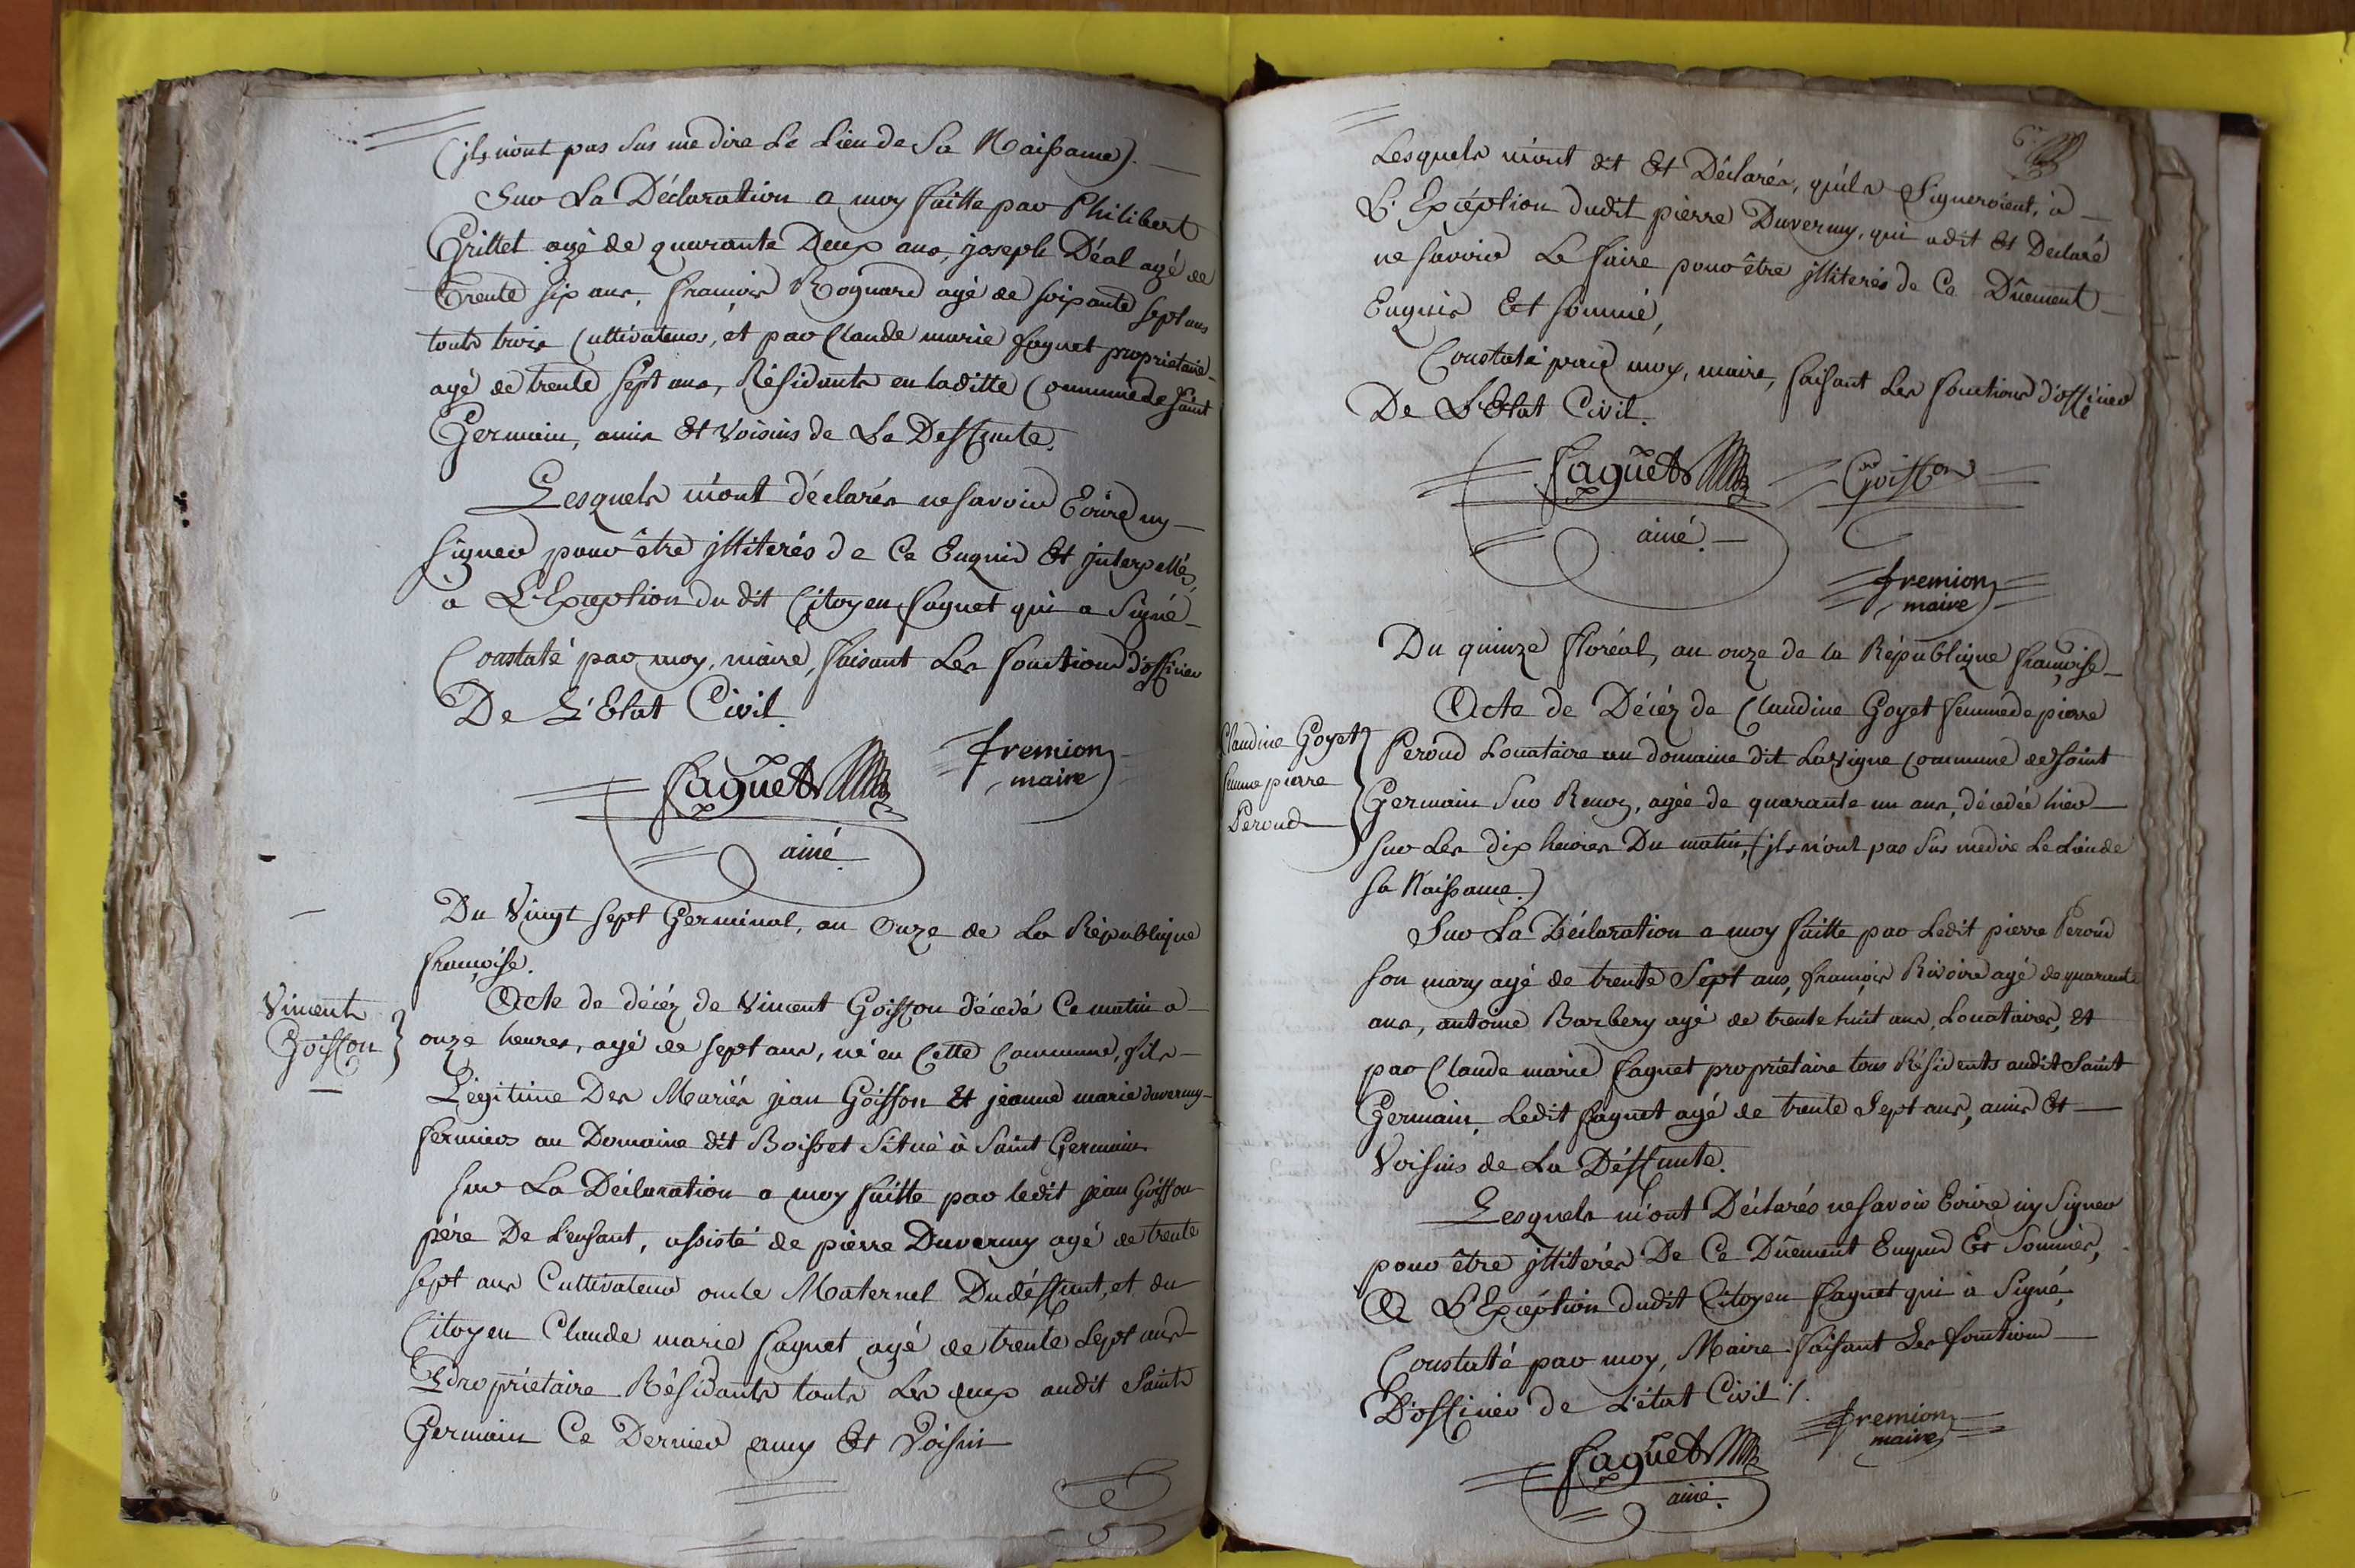 (ils n'ont pas sus me dire Le Lieu de Sa Naissance).
Sur La Déclaration a moy faitte par Philibert
Grillet agé de quarante Deux ans, joseph Déal agé de
trente six ans, françois Roguard agé de soixante sept ans
touts trois Cultivateurs, et par Claude marie faguet propriétaire
agé de trente sept ans, Résidants en laditte Commune de Saint
Germain, amis Et Voisins de La Deffunte.
Lesquels m'ont déclarés ne savoir Ecrire ny
signer pour être illiterés de Ce Enquis Et interpellés,
à L'Exception du dit Citoyen faguet qui a Signé
Constaté par moy, maire, faisant Les fonctions d'officier
De L'Etat Civil.
faguet
ainé
fremion
maire
Du Vingt sept Germinal, an Onze de La République
françoise.
Vincent
Goiffon
Acte de décéz de Vincent Goiffon décédé Ce matin a
onze heures, agé de sept ans, né en Cette Commune, fils
Légitime Des Mariés jean Goiffon Et jeanne marie duverny
fermiers au Domaine dit Boisset Situé à Saint Germain
sur La Déclaration a moy faitte par ledit jean Goiffon
pére De L'enfant, assisté de pierre Duverny agé de trente
sept ans Cultivateur oncle Maternel Du déffunt, et du
Citoyen Claude marie faguet agé de trente sept ans
Propriétaire Résidants touts Les deux audit Saint
Germain Ce Dernier amy Et Voisin
Lesquels m'ont dit Et Déclarés, qu'ils Signeroient, à
L'Exception dudit pierre Duverny, qui a dit Et Declaré
ne savoir Le faire pour être illiterés de Ce Dûement
Enquis Et sommé,
Constaté par moy, maire, faisant Les fonctions d'officier
De L'Etat Civil.
faguet
ainé.
Goiffon
fremion
maire
Du quinze floréal, an onze de la République françoise
Claudine Goyet
femme pierre
Peroud
Acte de Décéz de Claudine Goyet femme de pierre
Peroud Locataire au domaine dit La Vigne Commune de Saint
Germain Sur Renon, agée de quarante un ans, décédée hier
sur Les dix heures Du matin, (ils n'ont pas Sus me dire Le Lieu de
sa Naissance.)
Sur La Déclaration a moy faitte par Ledit pierre Peroud
son mary agé de trente Sept ans, françois Rivoire agé de quarante
ans, antoine Barbery agé de trente huit ans, Locataires, Et
par Claude marie faguet propriétaire tous Résidents audit Saint
Germain, Ledit faguet agé de trente Sept ans, amis Et
Voisins de La Déffunte.
Lesquels m'ont Déclarés ne Savoir Ecrire ny Signer
pour être illiterés De Ce Dûement Enquis Et Sommés,
A L'Exception dudit Citoyen faguet qui à Signé,
Constaté par moy, Maire faisant Les fonctions
D'officier de L'état Civil ./.
fremion
maire
faguet
ainé.